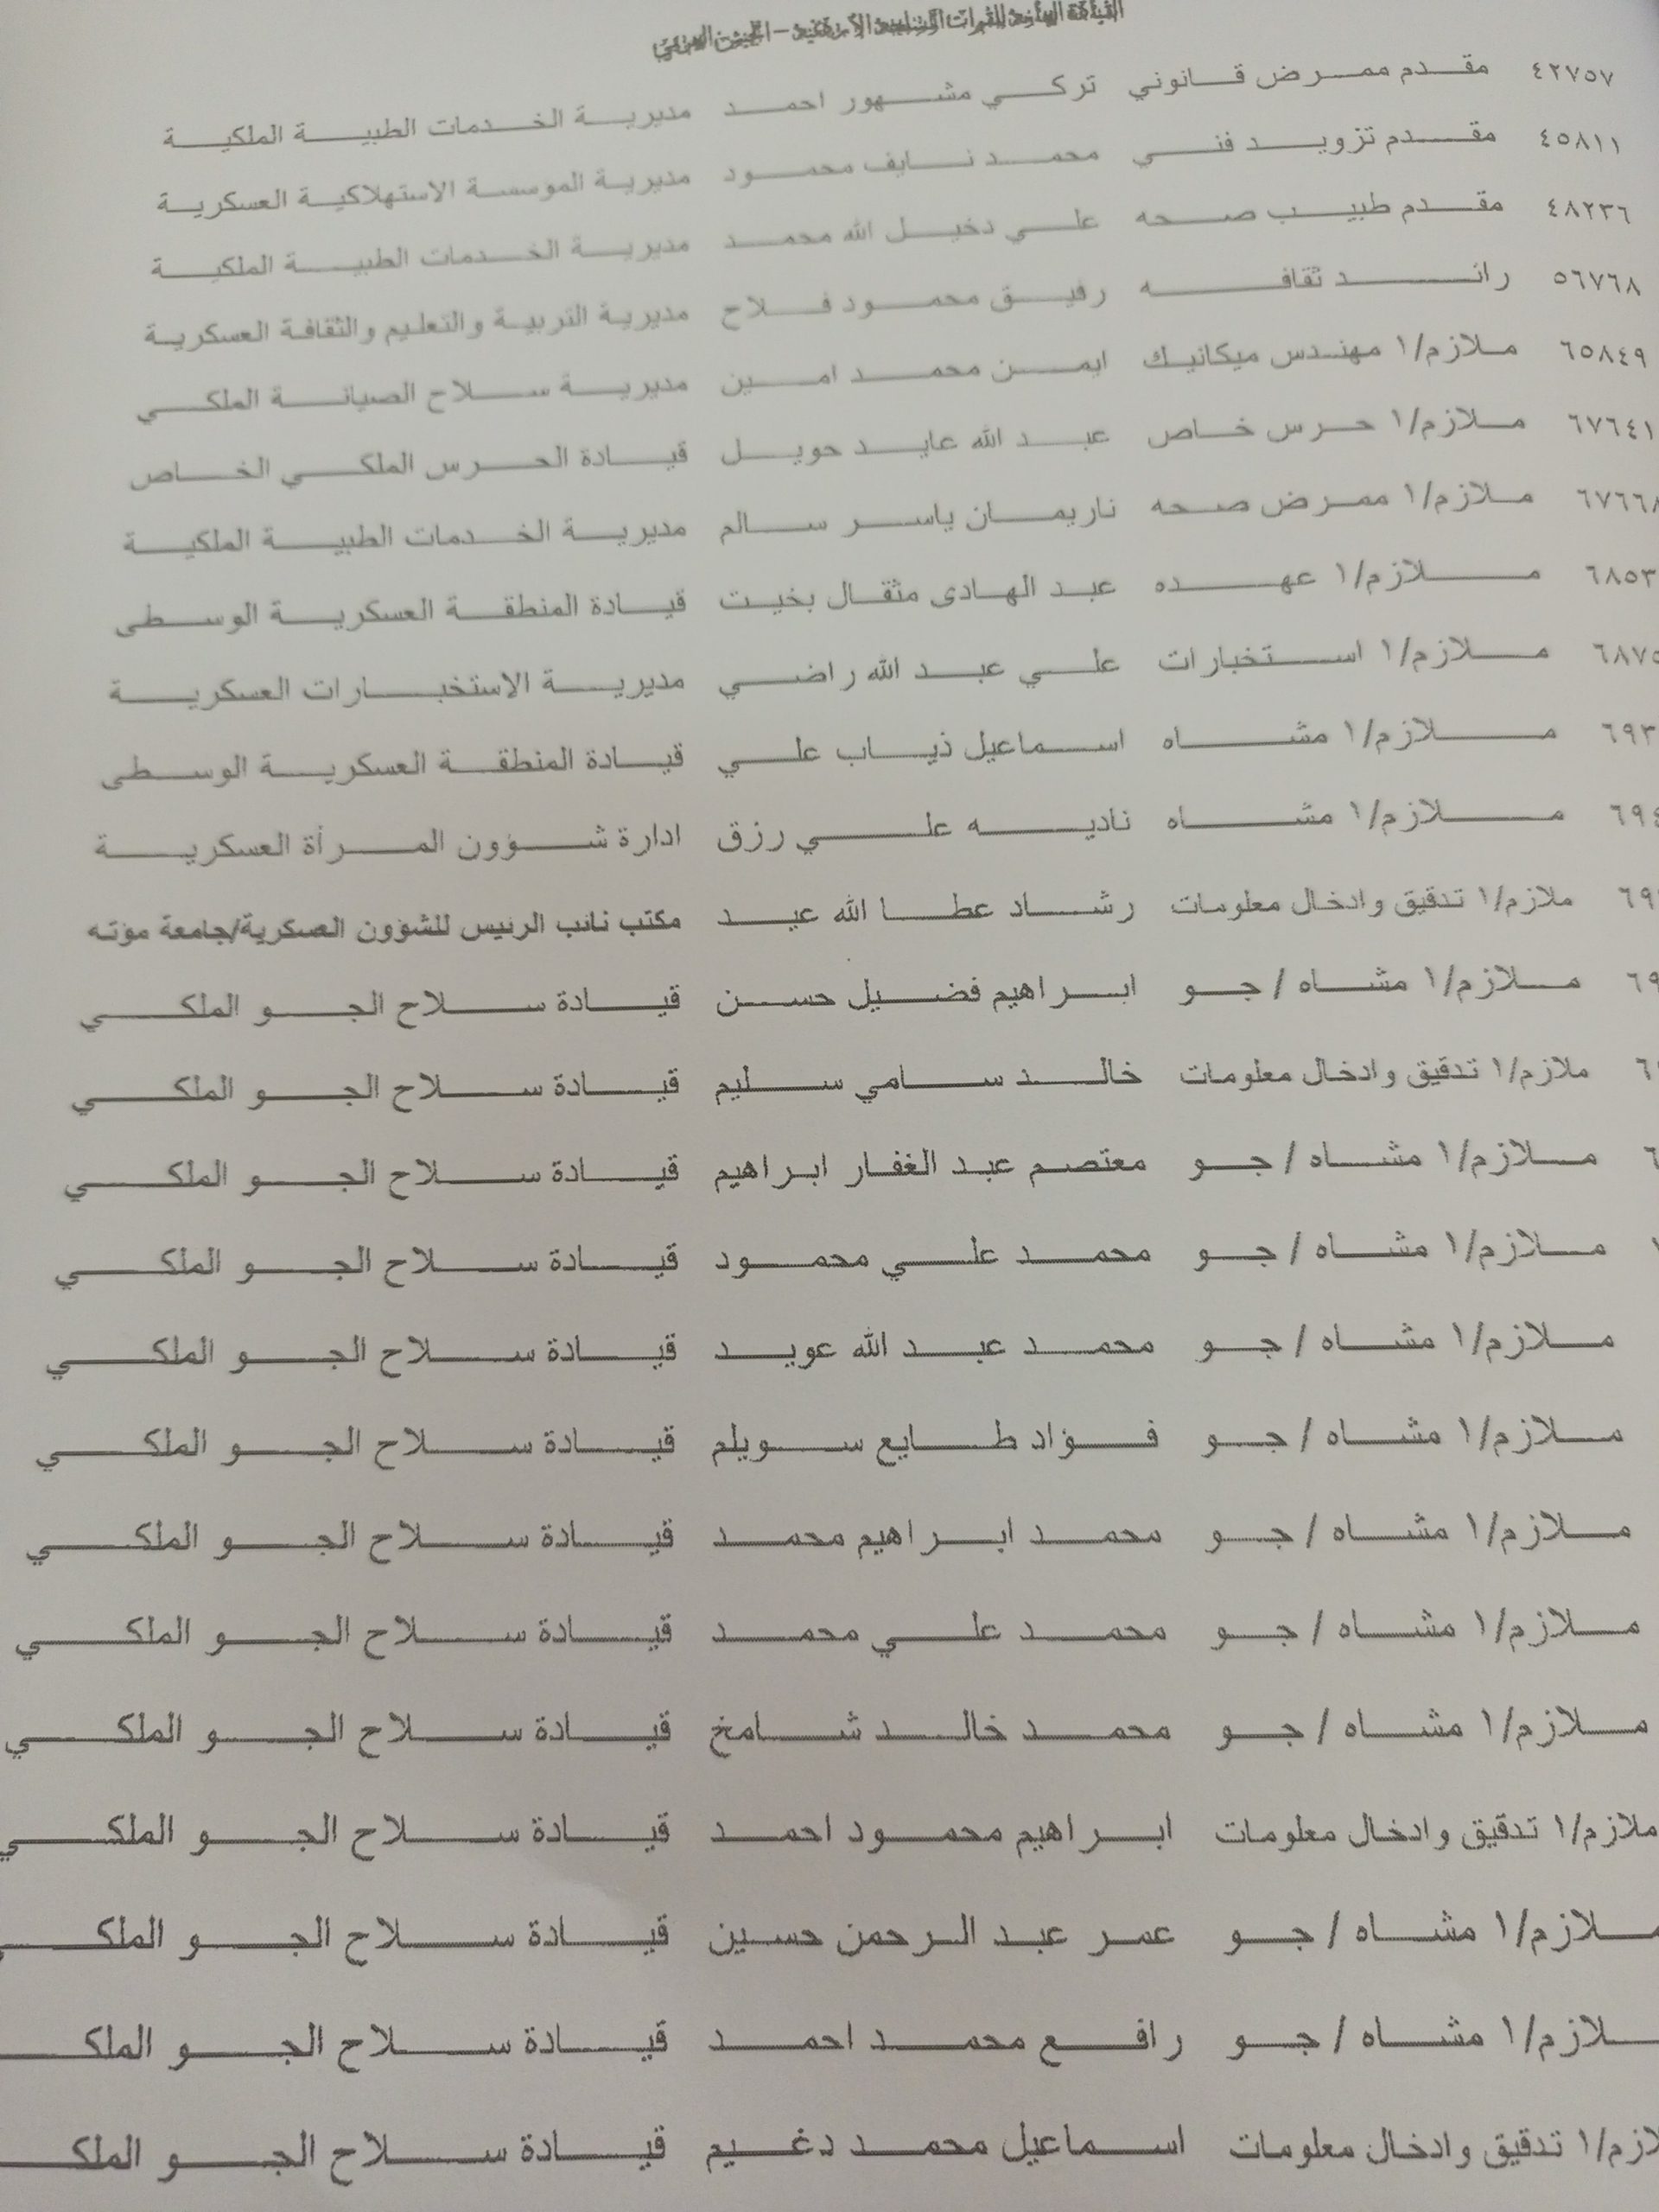 القيادة العامة للقوات المسلحة الأردنية - الجيش العربي
٤٢٧٥٧ مقدم ممرض قانوني تركي مشهور احمد مديرية الخدمات الطبية الملكية
٤٥٨١١ مقدم تزويد فني محمد نايف محمود مديرية الموسسة الاستهلاكية العسكرية
٤٨٢٣٦ مقدم طبيب صحه علي دخيل الله محمد مديرية الخدمات الطبية الملكية
٥٦٧٦٨ رائد ثقافه رفيق محمود فلاح مديرية التربية والتعليم والثقافة العسكرية
٦٥٨٤٩ ملازم/١ مهندس ميكانيك ايمن محمد امين مديرية سلاح الصيانة الملكي
٦٧٦٤١ ملازم/١ حرس خاص عبد الله عايد حويل قيادة الحرس الملكي الخاص
٦٧٦٦٨ ملازم/١ ممرض صحه ناريمان ياسر سالم مديرية الخدمات الطبية الملكية
٦٨٥٣ ملازم/١ عهده عبد الهادى مثقال بخيت قيادة المنطقة العسكرية الوسطى
٦٨٧٥ ملازم/١ استخبارات علي عبد الله راضي مديرية الإستخبارات العسكرية
٦٩٣ ملازم/١ مشاه اسماعيل ذياب علي قيادة المنطقة العسكرية الوسطى
٦٩٤ ملازم/١ مشاه ناديه علي رزق ادارة شؤون المرأة العسكرية
٦٩ ملازم/١ تدقيق وادخال معلومات رشاد عطا الله عيد مكتب نائب الرئيس للشؤون العسكرية/جامعة مؤته
٦٩ ملازم/١ مشاه / جو ابراهيم فضيل حسن قيادة سلاح الجو الملكي
٦ ملازم/١ تدقيق وادخال معلومات خالد سامي سليم قيادة سلاح الجو الملكي
٦ ملازم/١ مشاه / جو معتصم عبد الغفار ابراهيم قيادة سلاح الجو الملكي
ملازم/١ مشاه / جو محمد علي محمود قيادة سلاح الجو الملكي
ملازم/١ مشاه / جو محمد عبد الله عويد قيادة سلاح الجو الملكي
ملازم/١ مشاه / جو فؤاد طايع سويلم قيادة سلاح الجو الملكي
ملازم/١ مشاه / جو محمد ابراهيم محمد قيادة سلاح الجو الملكي
ملازم/١ مشاه / جو محمد علي محمد قيادة سلاح الجو الملكي
ملازم/١ مشاه / جو محمد خالد شامخ قيادة سلاح الجو الملكي
ملازم/١ تدقيق وادخال معلومات ابراهيم محمود احمد قيادة سلاح الجو الملكي
ملازم/١ مشاه / جو عمر عبد الرحمن حسين قيادة سلاح الجو الملكي
لازم/١ مشاه / جو رافع محمد احمد قيادة سلاح الجو الملك
لازم/١ تدقيق وادخال معلومات اسماعيل محمد دغيم قيادة سلاح الجو الملك